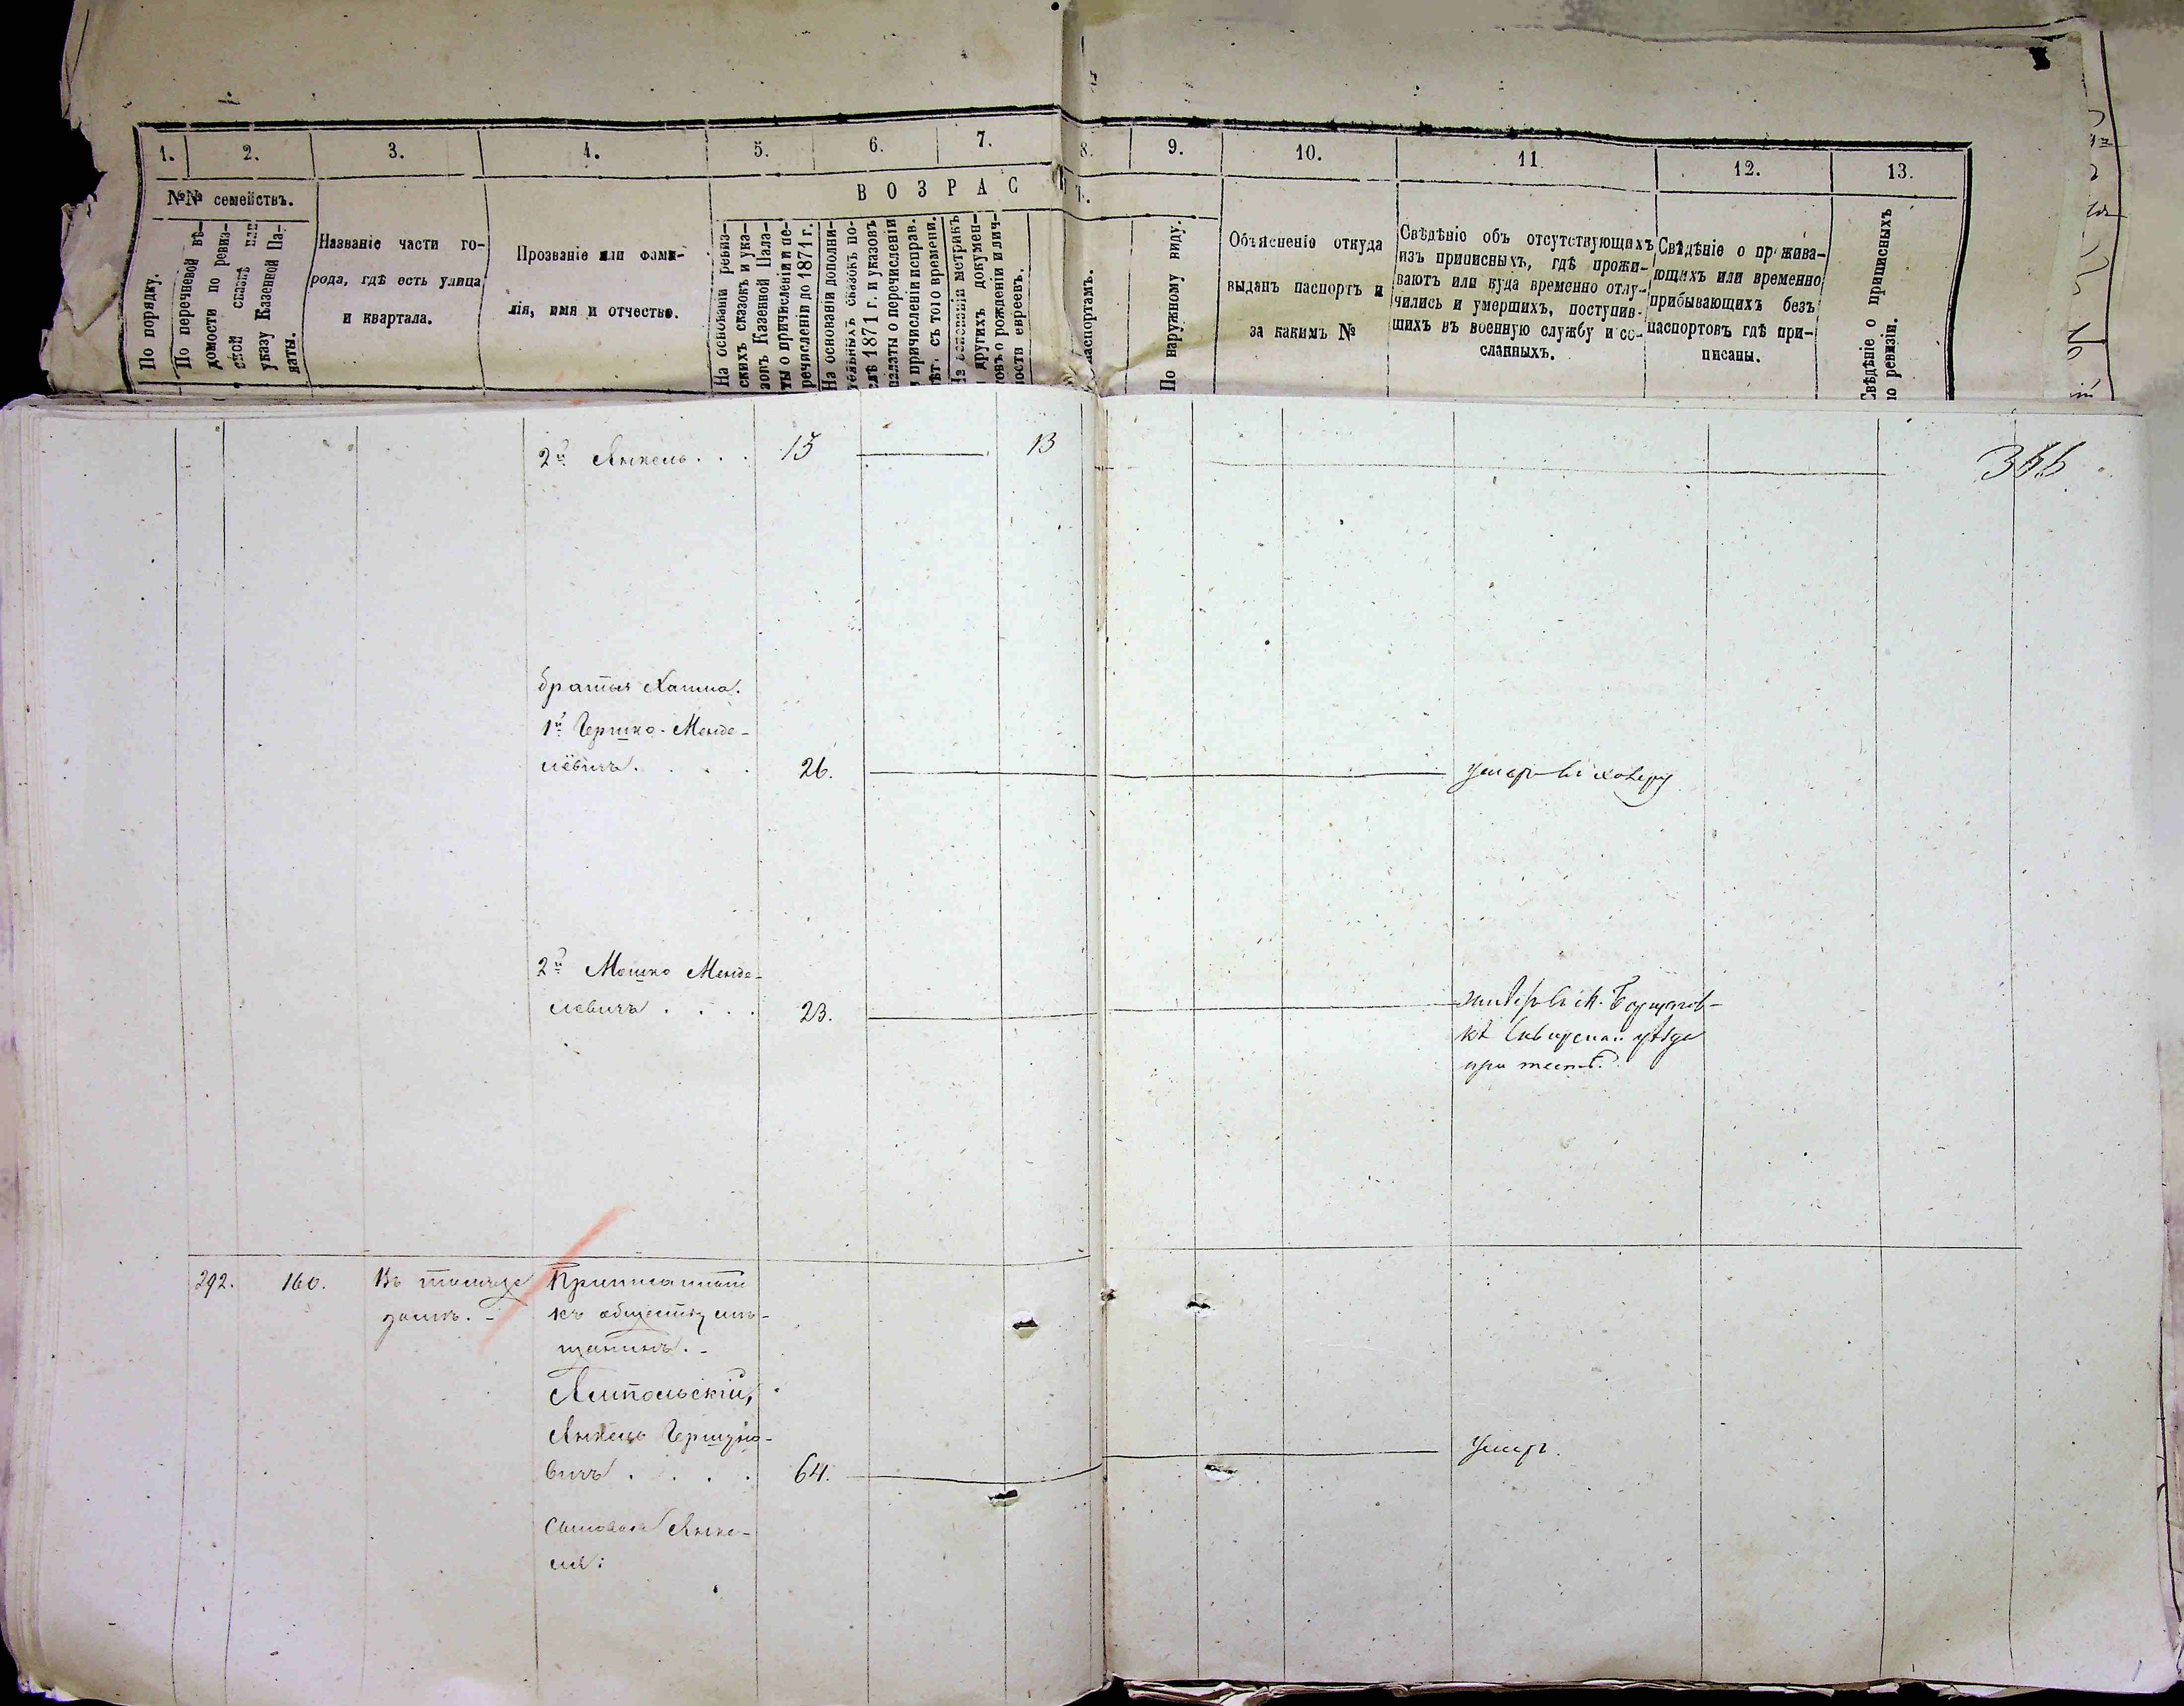 1. 2. 3. 4. 5. 6. 7. 8. 9. 10. 11 12. 13.
№№ семействъ.
В О З Р А С Т.
По порядку.
По перечневой вѣ-
домости по ревиз-
ской сказкѣ или
указу Казенной Па-
латы.
Названіе части го-
рода, гдѣ есть улица
и квартала.
Прозваніе или фами-
лія, имя и отчество.
На основаніи ревиз-
скихъ сказокъ и ука-
зовъ Казенной Пала-
ты о причисленіи и пе-
речисленіи до 1871 г.
На основаніи дополни-
тельныхъ сказокъ по-
слѣ 1871 г. и указовъ
палаты о перечисленіи
и причисленіи исправ.
лѣт. съ того времени.
На основаніи метрикъ
другихъ докумен-
товъ о рожденіи и лич-
ности евреевъ.
паспортамъ.
По наружному виду.
Объясненіе откуда
выданъ паспортъ и
за какимъ №
Свѣдѣніе объ отсутствующихъ
изъ приписныхъ, гдѣ прожи-
ваютъ или куда временно отлу-
чились и умершихъ, поступив-
шихъ въ военную службу и со-
сланныхъ.
Свѣдѣніе о прожива-
ющихъ или временно
прибывающихъ безъ
паспортовъ гдѣ при-
писаны.
Свѣдѣніе о приписныхъ
по ревизіи.
2й Янкель . . . 15 13
братья Хаима.
1й Гершко-Менде-
лёвичъ . . . . 26. умеръ въ холеру
2й Мошко Менде-
левичъ . . . . 23.
при тестѣ.
292. 160. Въ
домѣ. -
къ обществу мѣ-
щанинъ. -
Ямпольскій,
Янкель Гершко-
вичъ . . . . 64. умеръ.
Сыновья Янке-
ля: